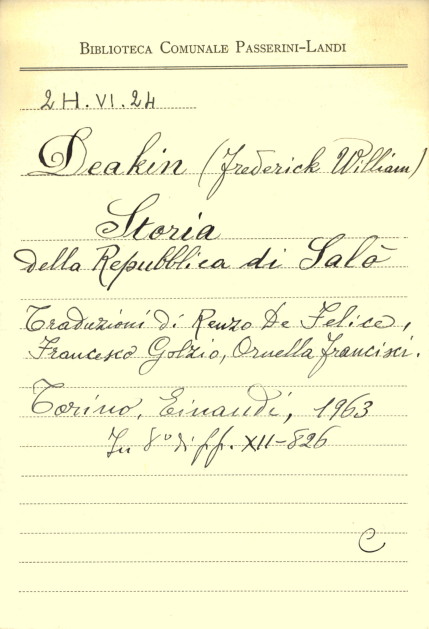 BIBLIOTECA COMUNALE PASSERINI-LANDI
2H.VI.24
Deakin (Frederick William)
Storia
della Repubblica di Salò
Traduzioni di Renzo De Felice,
Francesco Golzio, Ornella Francisci.
Torino, Einaudi, 1963
In 8° di pp. XII-826
C